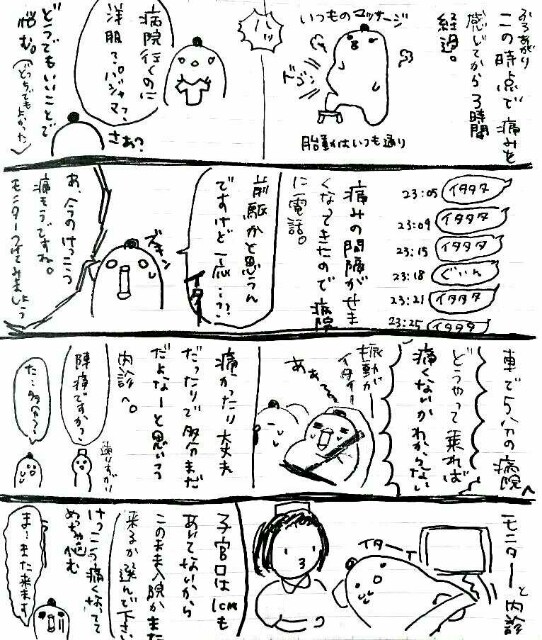 ふろあがり
この時点で痛みを
感じてから3時間
経過。
いつものマッサージ
ドゴン
胎動はいつも通り
病院行くのに
洋服?パジャマ?
さあ?
どっでもいいことで
悩む。
(どっちでもよかった)
23:05 イタタタ
23:09 イタタタ
23:15 イタタタ
23:18 ぐいん
23:21 イタタタ
23:25 イタタタ
痛みの間隔がせま
くなってきたので病院
に電話。
前駆かと思うん
ですけど一応…?
イター
ズキン
あ、今のけっこう
痛そうですね。
モニターつけてみましょう
車で5分の病院へ
どうやって乗れば
痛くないかわからない
振動がー
イタイー
あぁ
痛かったり大丈夫
だったりで多分まだ
だよなーと思いつつ
内診へ。
陣痛ですか?
通りすがり
た…多分?
モニターと内診
イターイ
子宮口は1cmも
あいてないから
このまま入院かまた
来るか選んで下さい
けっこう痛くなってて
めちゃ悩む
ま…また来ます